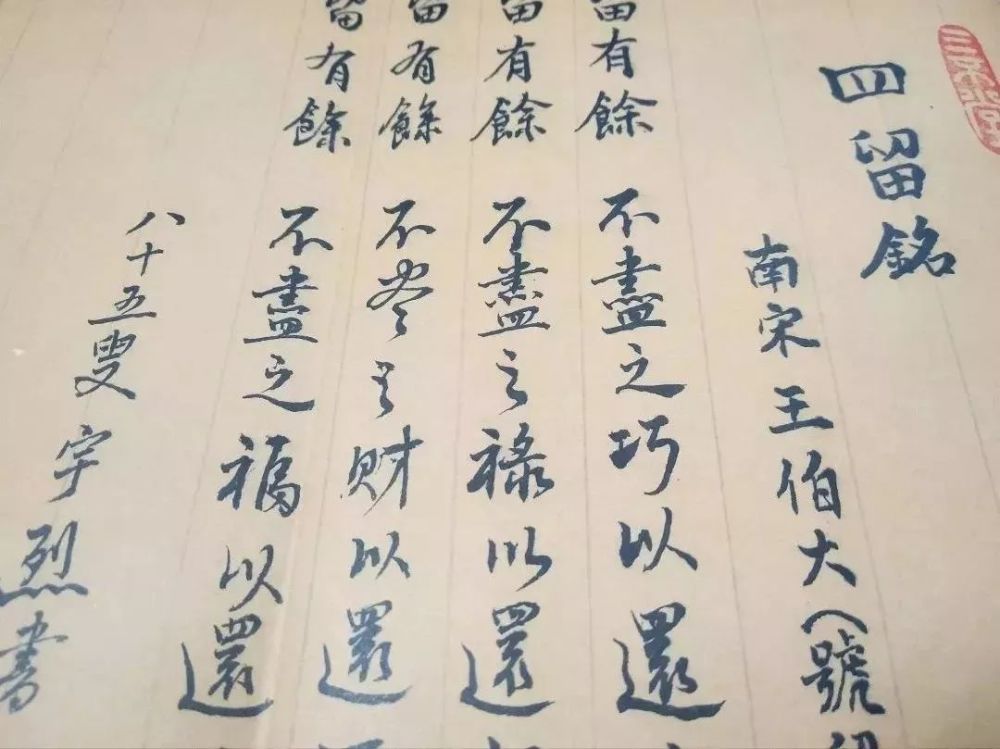 四留銘
南宋王伯大（號
留有餘 不盡之巧以還
留有餘 不盡之祿以還
留有餘 不尽之财以還
留有餘 不盡之福以還
八十五叟 宇烈書